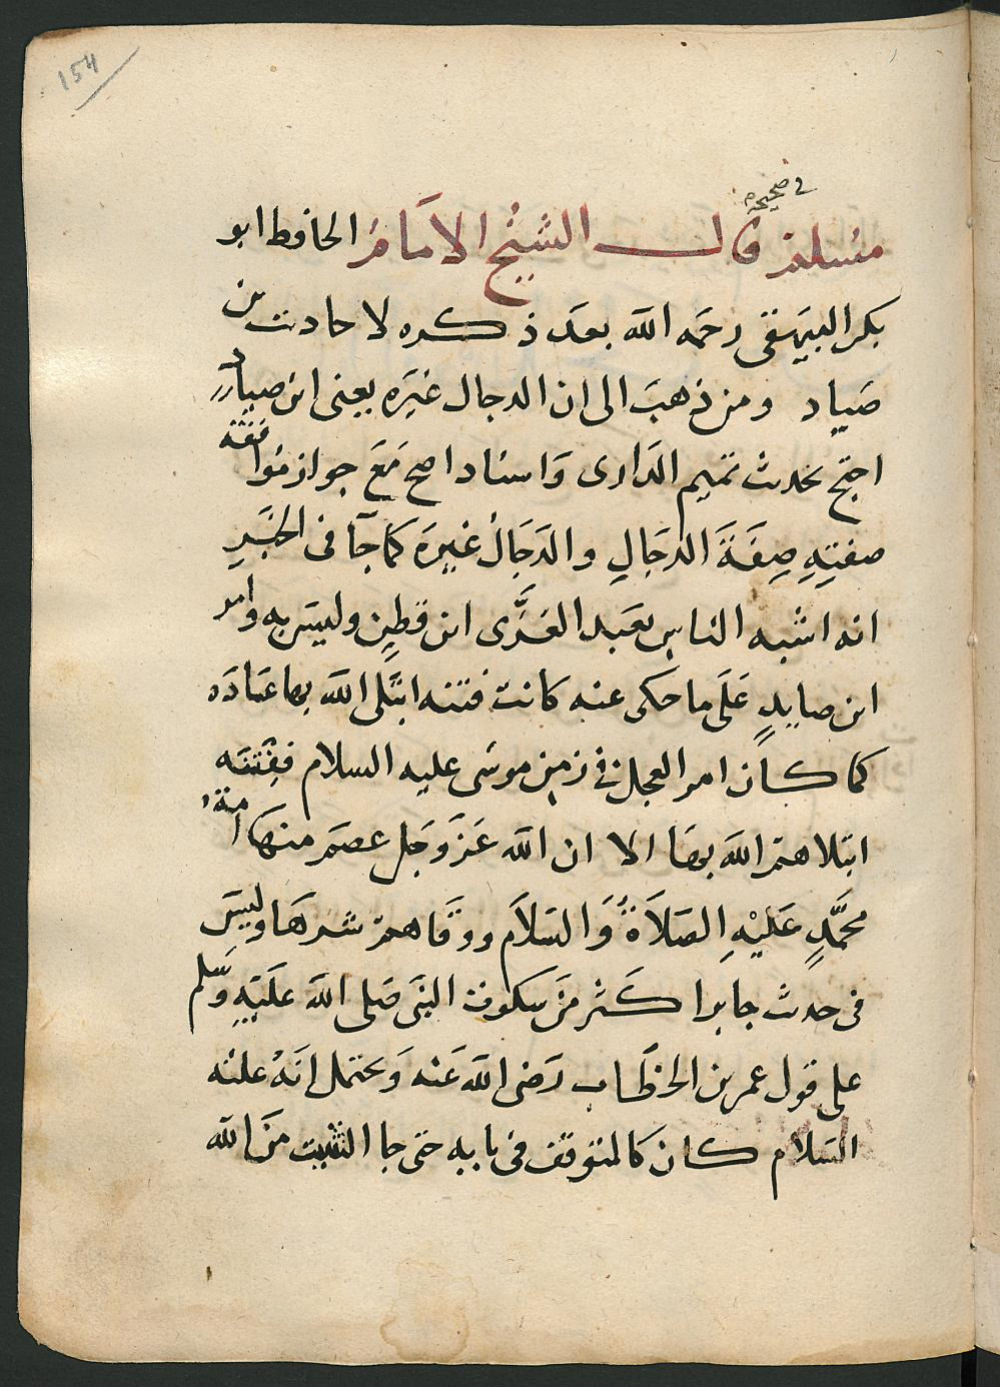 154
في صحيحه
مسلم قال الشيخ الامام الحافظ ابو
بكر البيهقى رحمه الله بعد ذكره لاحاديث بن
صياد ومن ذهب الى ان الدجال غيره يعنى ابن صياد
احتج بحديث تميم الدارى واسناد اصح مع جواز موافقة
صفتِهِ صِفَةَ الدجَالِ والدَجَالُ غيرَه كما جآ فى الخبَرِ
انه اشبه الناس بعبد العُزَّى ابن قطنٍ وليس به وامر
ابن صايدٍ عَلَى ما حكى عنه كانت فتنه ابتَلى الله بها عباده
كما كان امر العجل فى زمن موسَى عليه السلام فِتنَته
ابتلاهم الله بهَا الا ان الله عَزَوجَل عصَمَ منهَا امة
محمَّدٍ عَليْهِ الصَلاَةُ وَالسَلاَم ووقَاهم شرهَا وليسَ
فى حديث جابر اكَثر مَن سكوت النبَى صَلى الله علَيَهِ وَسَلم
على قول عمر بن الخطَاب رَضى الله عَنه وَيحتمل انَهُ عليْه
السَلام كان كالمتوقف فى بابه حتى جا التثبت مَن الله